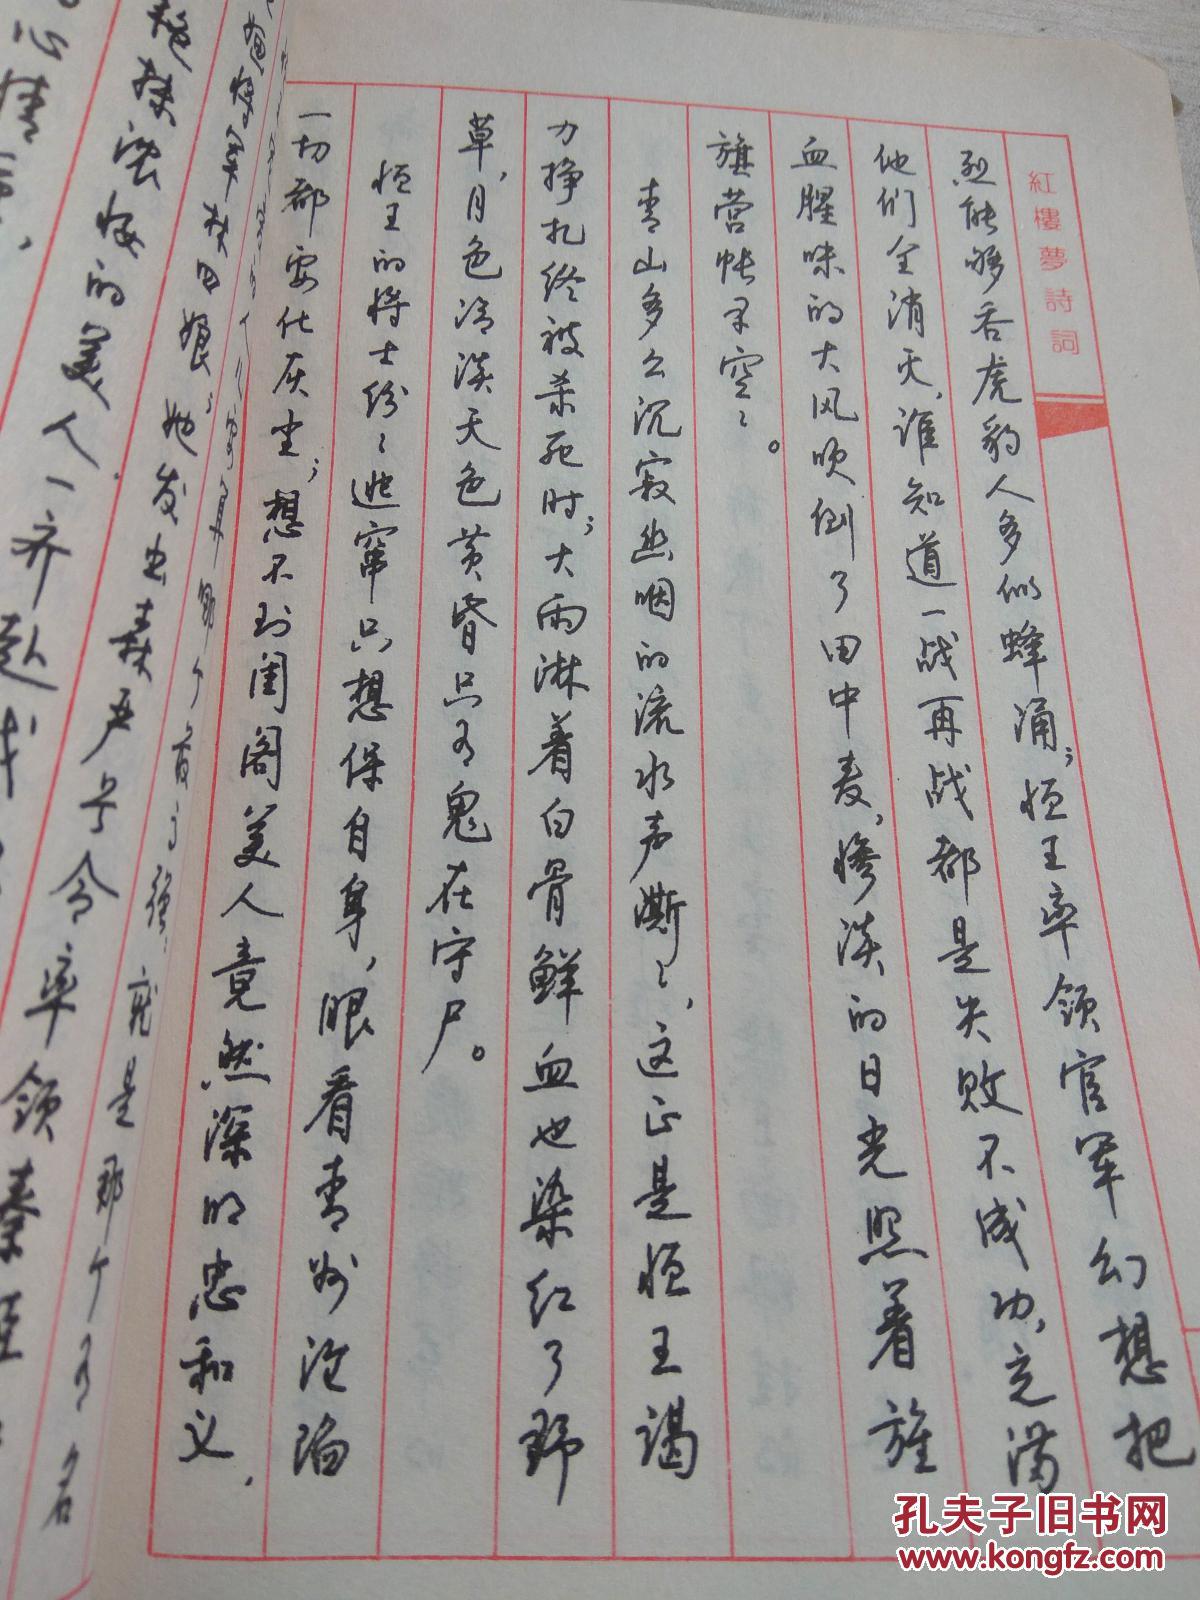 紅樓夢詩詞
烈能够吞虎豹人多似蜂涌；恒王率领官军幻想把
他们全消灭，谁知道一战再战都是失败不成功，充满
血腥味的大风吹倒了田中麦，惨淡的日光照着旌
旗营帐早空空。
青山多么沉寂幽咽的流水声澌澌，这正是恒王谒
力挣扎终被杀死时；大雨淋着白骨鲜血也染红了野
草，月色清淡天色黄昏只有鬼在守尸。
恒王的将士纷纷逃窜只想保自身，眼看青州沦陷
一切都要化灰尘；想不到闺阁美人竟然深明忠和义，
就是那个有名
林四娘；她发出森严号令率领秦
的美人一齐赴战
孔夫子旧书网
www.kongfz.com